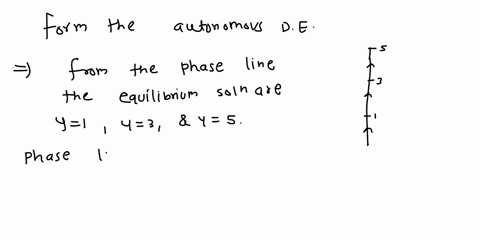 form the autonomous D.E.
⇒ from the phase line
the equilibrium soln are
y=1, y=3, & y=5.
phase l
5
3
1